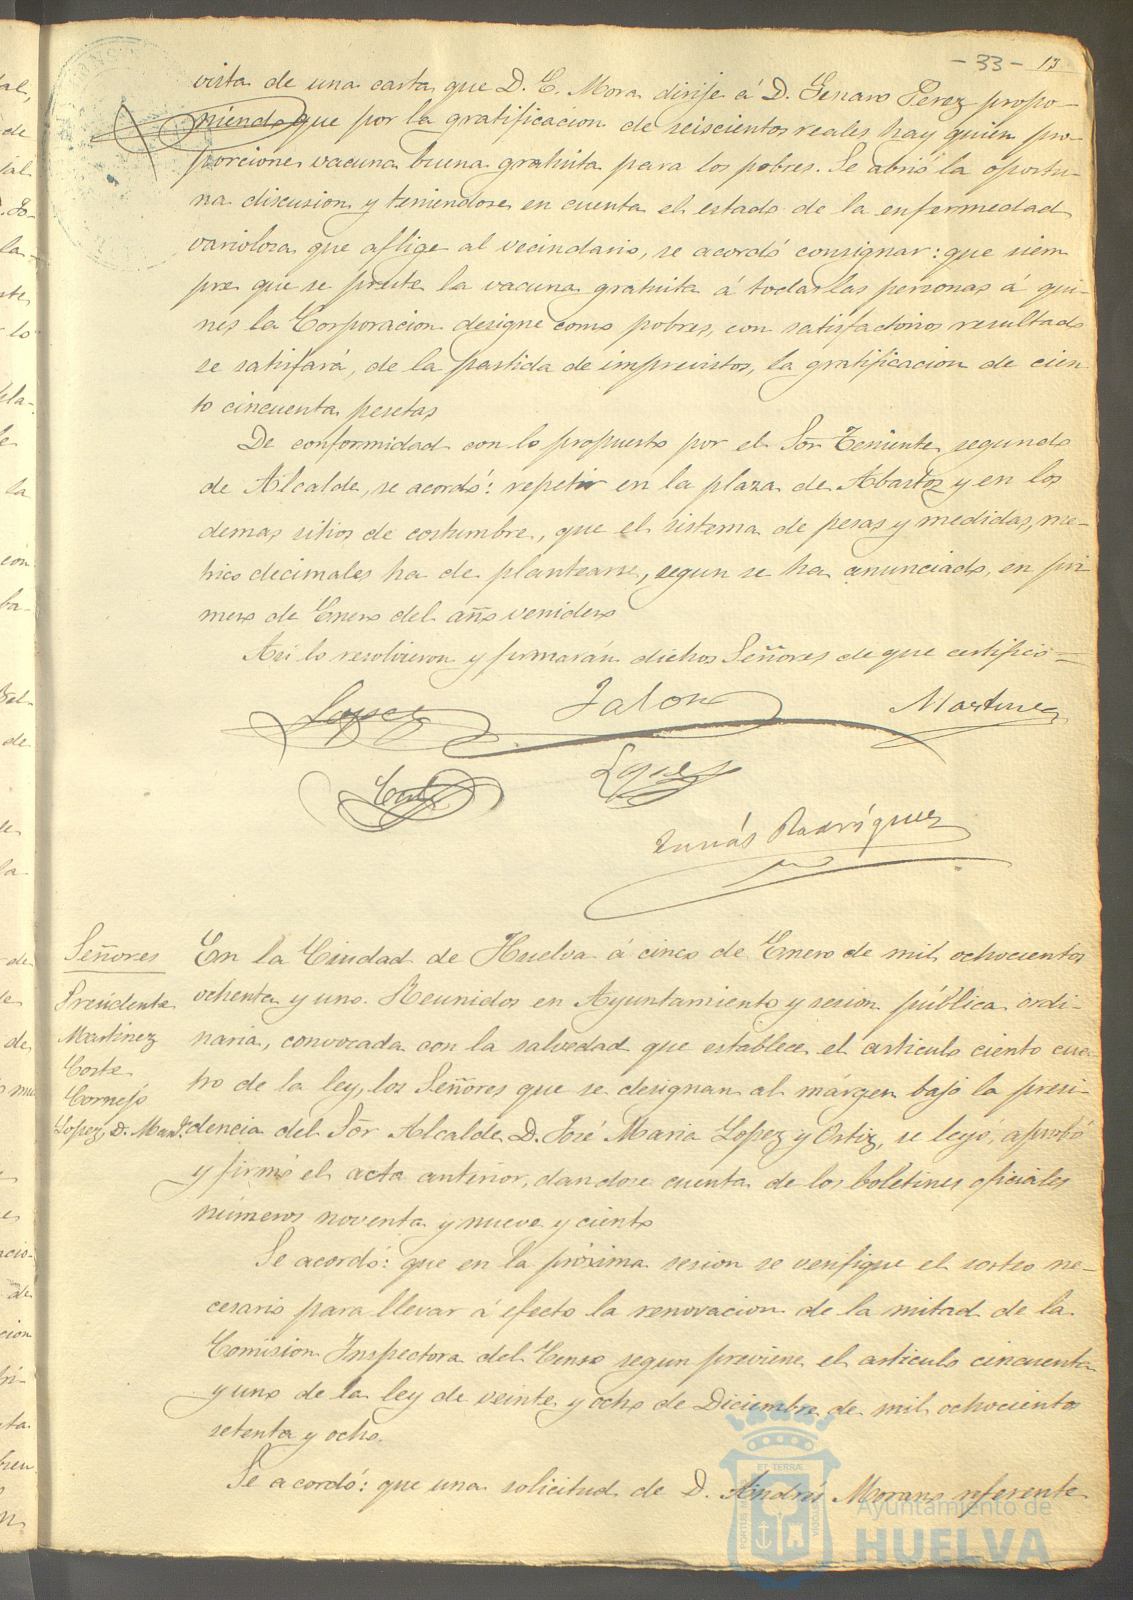 - 33 - 13
vista de una carta que D. E. Mora dirije á D. Genaro Perez propo-
niendo que por la gratificacion de seiscientos reales hay quien pro-
porcione vacuna buena gratuita para los pobres. Se abrió la oportu-
na discusion y teniendose en cuenta el estado de la enfermedad
variolosa que aflige al vecindario, se acordó consignar: que siem
pre que se preste la vacuna gratuita á todas las personas á quie-
nes la Corporacion designe como pobres, con satisfactorios resultado
se satisfará, de la partida de imprevistos, la gratificacion de cien-
to cincuenta pesetas
De conformidad con lo propuesto por el Sor Teniente segundo
de Alcalde, se acordó: repetir en la plaza de Abastos y en los
demas sitios de costumbre, que el sistema de pesas y medidas, me-
trico decimales ha de plantearse, segun se ha anunciado, en pri
mero de Enero del año venidero
Asi lo resolvieron y firmarán dichos Señores de que certifico=
Lopez Jalon Martinez
Lopez
Tomás Rodriguez
Señores
Presidente
Martinez
Coste
Cornejo
Lopez, D. Manl.
En la Ciudad de Huelva á cinco de Enero de mil ochocientos
ochenta y uno. Reunidos en Ayuntamiento y sesion pública ordi-
naria, convocada con la salvedad que establece el articulo ciento cua-
tro de la ley, los Señores que se designan al márgen bajo la presi-
dencia del Sor Alcalde D. José Maria Lopez y Ortiz, se leyó, aprobó
y firmó el acta anterior, dandose cuenta de los boletines oficiales
números noventa y nueve y ciento
Se acordó: que en la próxima sesion se verifique el sorteo ne-
cesario para llevar á efecto la renovacion de la mitad de la
Comision Inspectora del Censo segun previene el articulo cincuenta
y uno de la ley de veinte y ocho de Diciembre de mil ochocientos
setenta y ocho.
Se acordó: que una solicitud de D. Andrés Morano referente
Ayuntamiento de
HUELVA